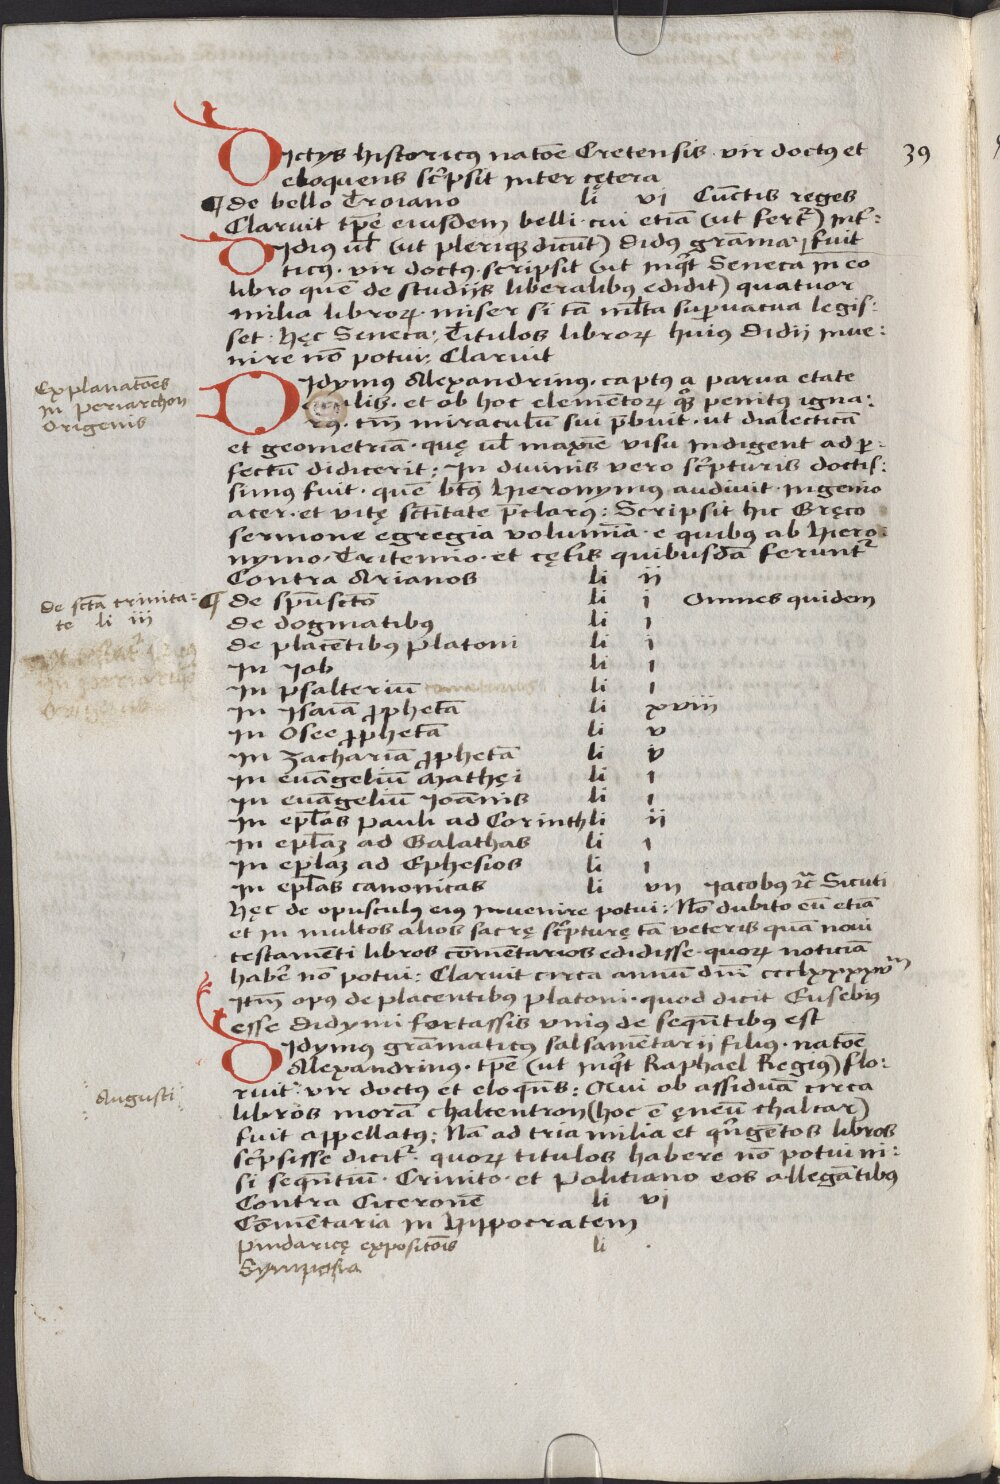 39
Dictys historicꝰ natōe Cretensis · vir doctꝰ et
eloquens sc̄psit inter cętera
¶ de bello Troiano li vi Cūctis reges
Claruit tp̄e eiusdem belli · cui etiā (ut fert᷑) int᷑:
Didius ul̄ (ut pleriqꝫ dicūt) Didꝰ grāma: fuit
ticꝰ · vir doctꝰ · scripsit (ut inq̄t Seneca in eo
libro quē de studijs liberalibus edidit) quatuor
milia libroꝝ · miser si tā ml̄ta suꝑvacua legis:
set · hęc Seneca: Titulos libroꝝ huius Didij inve:
nire nō potui: Claruit
Explanatōes
in Periarchon
Origenis
Didymus Alexandrinꝰ · captꝰ a parva etate
et ob hoc elemētoꝝ qꝫ penitꝰ igna:
rꝰ · tn̄ miraculū sui p̄buit · ut dialecticā
et geometriā · quę ul̄ maxīe visu indigent ad ꝑ:
fectū didicerit: In divinis vero sc̄pturis doctis:
simꝰ fuit · quē bt̄ꝰ Hieronymꝰ audivit · ingenio
acer · et vitę sct̄itate p̄clarꝰ: Scripsit hic Gręco
sermone egregia volumīa · e quibus ab Hiero:
nymo · Tritemio · et cęt̄is quibusdā ferunt᷑
Contra Arianos li ii
de sct̄a trinita:
te li iii
¶ de sp̄uscto li i Omnes quidem
de dogmatibus li i
de placētibus Platoni li i
in Iob li i
in psalteriū li i
in Isaiā ꝓphetā li xviii
in Osee ꝓphetā li v
in Zachariā ꝓphetā li v
in euāgeliū Mathęi li i
in euāgeliū Ioānis li i
in epl̄as Pauli ad Corinth li ii
in epl̄aꝫ ad Galathas li i
in epl̄aꝫ ad Ephesios li i
in epl̄as canonicas li vii Iacobꝰ ⁊c̄ Sicuti
Hęc de opusculꝭ eiꝰ invenire potui: Nō dubito eū etiā
et in multos alios sacrę sc̄pturę tā veteris quā novi
testamēti libros cōmētarios edidisse · quoꝝ noticiā
habē nō potui: Claruit circa annū dn̄i cccLxxxxvᵐ
Itm̄ opꝰ de placentibꝰ Platoni · quod dicit Eusebiꝰ
esse Didymi fortassis vniꝰ de seqn̄tibꝰ est
Didymꝰ grāmaticꝰ salsamētarij filiꝰ · natōe
Alexandrinꝰ · tp̄e (ut inq̄t Raphael Regiꝰ) flo:
Augusti
ruit · vir doctꝰ et eloqn̄s: Qui ob assiduā circa
libros morā chalcentron (hoc ē ęneū chalcar)
fuit appellatꝰ: Nā ad tria milia et qn̄gētos libros
sc̄psisse dicit᷑ · quoꝝ titulos habere nō potui ni:
si seqn̄tiū · Crinito · et Politiano eos allegātibꝰ
Contra Ciceronē li vi
Cōmētaria in Hippocratem
Pindaricę expositōis li
Symposia